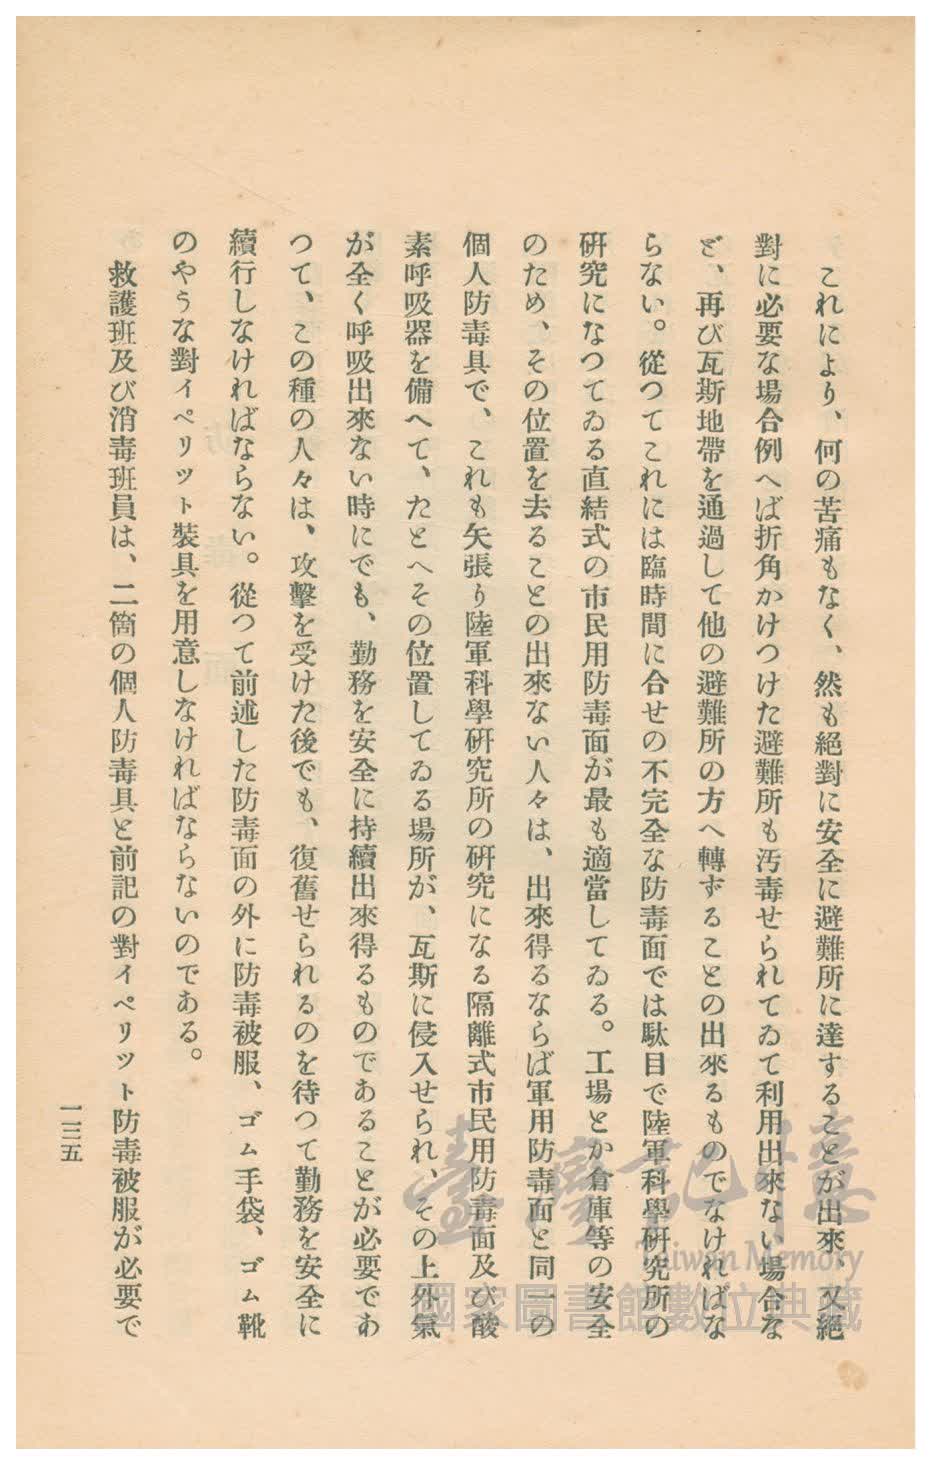 これにより、何の苦痛もなく、然も絕對に安全に避難所に達することが出來、又絕
對に必要な場合例へば折角かけつけた避難所も汚毒せられてゐて利用出來ない場合な
ど、再び瓦斯地帶を通過して他の避難所の方へ轉ずることの出來るものでなければな
らない。從つてこれには臨時間に合せの不完全な防毒面では駄目で陸軍科學硏究所の
硏究になつてゐる直結式の市民用防毒面が最も適當してゐる。工場とか倉庫等の安全
のため、その位置を去ることの出來ない人々は、出來得るならば軍用防毒面と同一の
個人防毒具で、これも矢張り陸軍科學硏究所の硏究になる隔離式市民用防毒面及び酸
素呼吸器を備へて、たとへその位置してゐる場所が、瓦斯に侵入せられ、その上外氣
が全く呼吸出來ない時にでも、勤務を安全に持續出來得るものであることが必要であ
つて、この種の人々は、攻擊を受けた後でも、復舊せられるのを待つて勤務を安全に
續行しなければならない。從つて前述した防毒面の外に防毒被服、ゴム手袋、ゴム靴
のやうな對イペリット裝具を用意しなければならないのである。
救護班及び消毒班員は、二箇の個人防毒具と前記の對イペリット防毒被服が必要で
一三五
臺灣記憶
Taiwan Memory
國家圖書館數位典藏